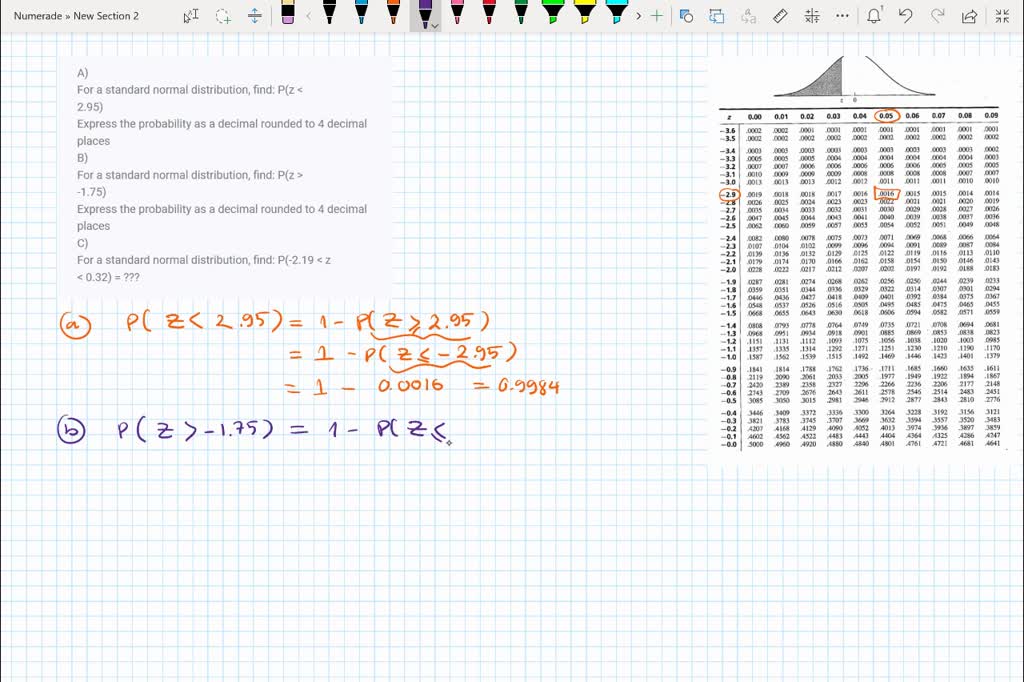 Numerade » New Section 2
A)
For a standard normal distribution, find: P(z <
2.95)
Express the probability as a decimal rounded to 4 decimal
places
B)
For a standard normal distribution, find: P(z >
-1.75)
Express the probability as a decimal rounded to 4 decimal
places
C)
For a standard normal distribution, find: P(-2.19 < z
< 0.32) = ???
(a) P( Z < 2.95) = 1 - P( Z ⩾ 2.95 )
= 1 - P( Z ⩽ - 2.95 )
= 1 - 0.0016 = 0.9984
(b) P( Z > -1.75) = 1 - P( Z ⩽
z 0
z 0.00 0.01 0.02 0.03 0.04 0.05 0.06 0.07 0.08 0.09
-3.6 .0002 .0002 .0001 .0001 .0001 .0001 .0001 .0001 .0001 .0001
-3.5 .0002 .0002 .0002 .0002 .0002 .0002 .0002 .0002 .0002 .0002
-3.4 .0003 .0003 .0003 .0003 .0003 .0003 .0003 .0003 .0003 .0002
-3.3 .0005 .0005 .0005 .0004 .0004 .0004 .0004 .0004 .0004 .0003
-3.2 .0007 .0007 .0006 .0006 .0006 .0006 .0006 .0005 .0005 .0005
-3.1 .0010 .0009 .0009 .0009 .0008 .0008 .0008 .0008 .0007 .0007
-3.0 .0013 .0013 .0013 .0012 .0012 .0011 .0011 .0011 .0010 .0010
-2.9 .0019 .0018 .0018 .0017 .0016 .0016 .0015 .0015 .0014 .0014
-2.8 .0026 .0025 .0024 .0023 .0023 .0022 .0021 .0021 .0020 .0019
-2.7 .0035 .0034 .0033 .0032 .0031 .0030 .0029 .0028 .0027 .0026
-2.6 .0047 .0045 .0044 .0043 .0041 .0040 .0039 .0038 .0037 .0036
-2.5 .0062 .0060 .0059 .0057 .0055 .0054 .0052 .0051 .0049 .0048
-2.4 .0082 .0080 .0078 .0075 .0073 .0071 .0069 .0068 .0066 .0064
-2.3 .0107 .0104 .0102 .0099 .0096 .0094 .0091 .0089 .0087 .0084
-2.2 .0139 .0136 .0132 .0129 .0125 .0122 .0119 .0116 .0113 .0110
-2.1 .0179 .0174 .0170 .0166 .0162 .0158 .0154 .0150 .0146 .0143
-2.0 .0228 .0222 .0217 .0212 .0207 .0202 .0197 .0192 .0188 .0183
-1.9 .0287 .0281 .0274 .0268 .0262 .0256 .0250 .0244 .0239 .0233
-1.8 .0359 .0351 .0344 .0336 .0329 .0322 .0314 .0307 .0301 .0294
-1.7 .0446 .0436 .0427 .0418 .0409 .0401 .0392 .0384 .0375 .0367
-1.6 .0548 .0537 .0526 .0516 .0505 .0495 .0485 .0475 .0465 .0455
-1.5 .0668 .0655 .0643 .0630 .0618 .0606 .0594 .0582 .0571 .0559
-1.4 .0808 .0793 .0778 .0764 .0749 .0735 .0721 .0708 .0694 .0681
-1.3 .0968 .0951 .0934 .0918 .0901 .0885 .0869 .0853 .0838 .0823
-1.2 .1151 .1131 .1112 .1093 .1075 .1056 .1038 .1020 .1003 .0985
-1.1 .1357 .1335 .1314 .1292 .1271 .1251 .1230 .1210 .1190 .1170
-1.0 .1587 .1562 .1539 .1515 .1492 .1469 .1446 .1423 .1401 .1379
-0.9 .1841 .1814 .1788 .1762 .1736 .1711 .1685 .1660 .1635 .1611
-0.8 .2119 .2090 .2061 .2033 .2005 .1977 .1949 .1922 .1894 .1867
-0.7 .2420 .2389 .2358 .2327 .2296 .2266 .2236 .2206 .2177 .2148
-0.6 .2743 .2709 .2676 .2643 .2611 .2578 .2546 .2514 .2483 .2451
-0.5 .3085 .3050 .3015 .2981 .2946 .2912 .2877 .2843 .2810 .2776
-0.4 .3446 .3409 .3372 .3336 .3300 .3264 .3228 .3192 .3156 .3121
-0.3 .3821 .3783 .3745 .3707 .3669 .3632 .3594 .3557 .3520 .3483
-0.2 .4207 .4168 .4129 .4090 .4052 .4013 .3974 .3936 .3897 .3859
-0.1 .4602 .4562 .4522 .4483 .4443 .4404 .4364 .4325 .4286 .4247
-0.0 .5000 .4960 .4920 .4880 .4840 .4801 .4761 .4721 .4681 .4641